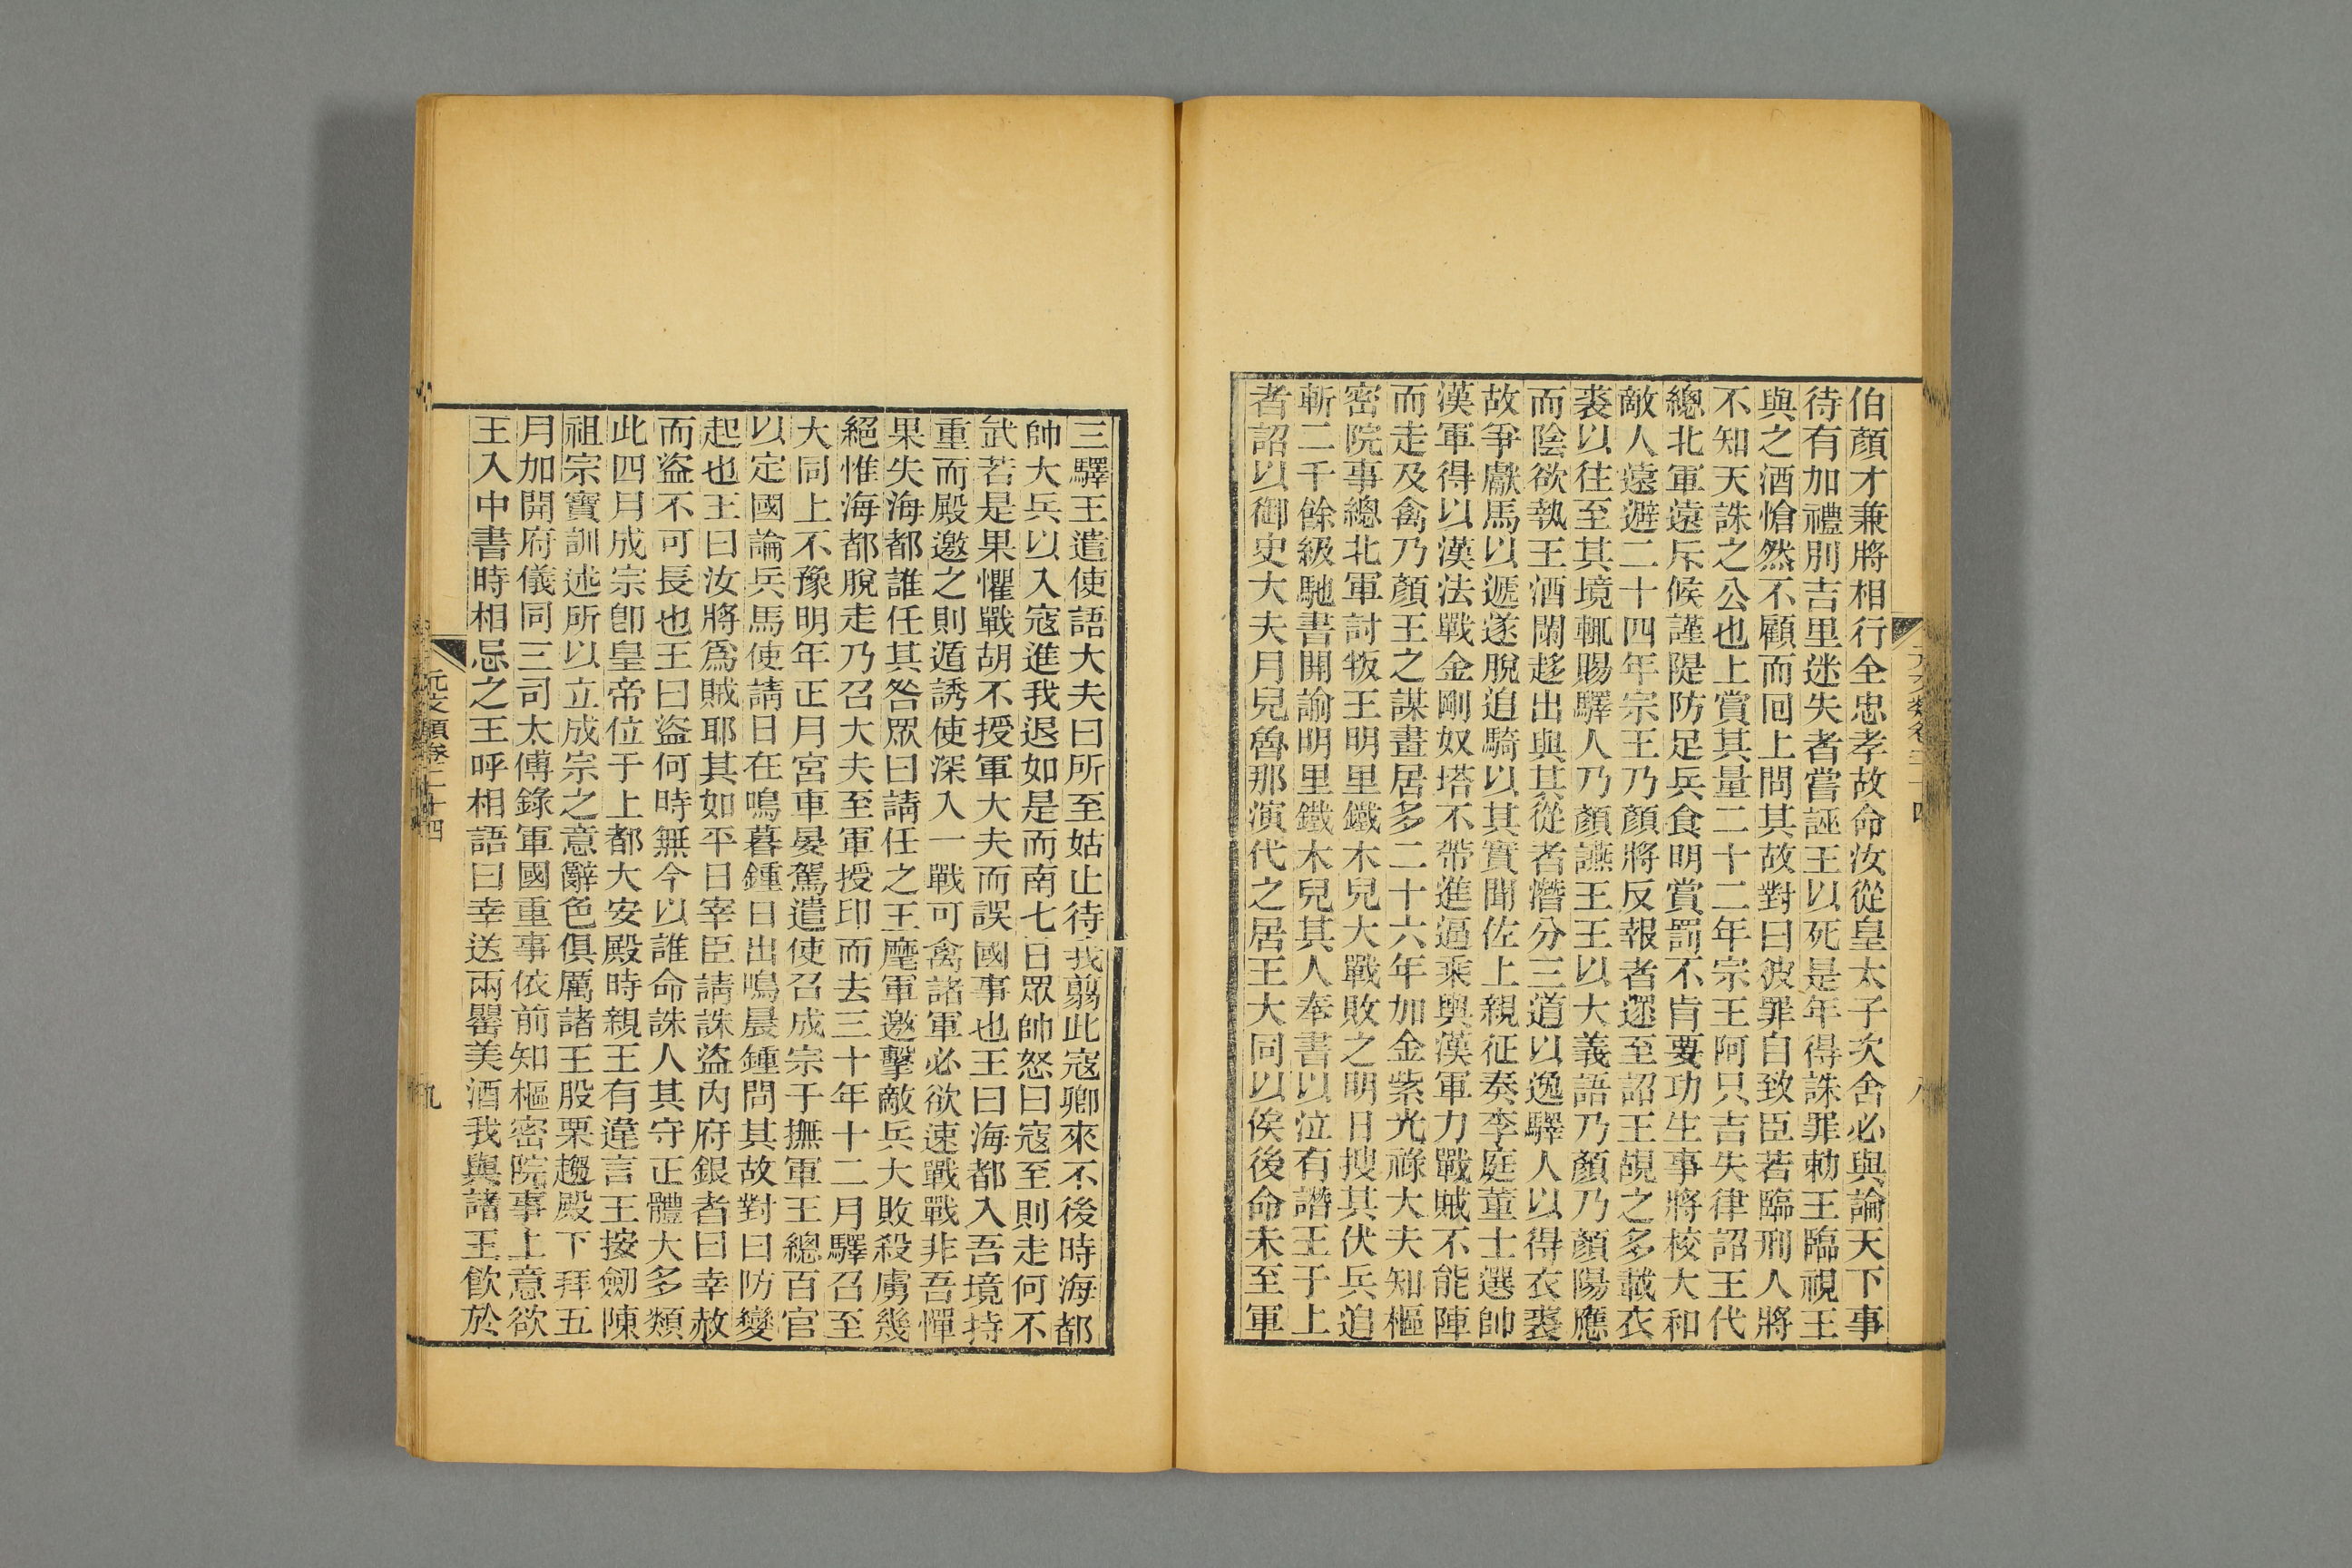 伯顏才兼將相行全忠孝故命汝從皇太子次舍必與論天下事
待有加禮別吉里迷失者嘗誣王以死是年得誅罪勅王臨視王
與之酒愴然不顧而回上問其故對曰彼罪自致臣若臨刑人將
不知天誅之公也上賞其量二十二年宗王阿只吉失律詔王代
總北軍遠斥候謹隄防足兵食明賞罰不肯要功生事將校大和
敵人遠遯二十四年宗王乃顏將反報者遝至詔王覘之多載衣
裘以往至其境輒賜驛人乃顏讌王王以大義語乃顏乃顏陽應
而陰欲執王酒闌趍出與其從者潛分三道以逸驛人以得衣裘
故爭獻馬以遞遂脫追騎以其實聞佐上親征奏李庭董士選帥
漢軍得以漢法戰金剛奴塔不帶進逼乘輿漢軍力戰賊不能陣
而走及禽乃顏王之謀畫居多二十六年加金紫光祿大夫知樞
密院事總北軍討叛王明里鐵木兒大戰敗之明日搜其伏兵追
斬二千餘級馳書開諭明里鐵木兒其人奉書以泣有譖王于上
者詔以御史大夫月兒魯那演代之居王大同以俟後命未至軍
三驛王遣使語大夫曰所至姑止待我翦此寇卿來不後時海都
帥大兵以入寇進我退如是而南七日眾帥怒曰寇至則走何不
武若是果懼戰胡不授軍大夫而誤國事也王曰海都入吾境持
重而殿邀之則遁誘使深入一戰可禽諸軍必欲速戰戰非吾憚
果失海都誰任其咎眾曰請任之王麾軍邀擊敵兵大敗殺虜幾
絕惟海都脫走乃召大夫至軍授印而去三十年十二月驛召至
大同上不豫明年正月宮車晏駕遣使召成宗于撫軍王總百官
以定國論兵馬使請日在鳴暮鍾日出鳴晨鍾問其故對曰防變
起也王曰汝將爲賊耶其如平日宰臣請誅盜內府銀者曰幸赦
而盜不可長也王曰盜何時無今以誰命誅人其守正體大多類
此四月成宗卽皇帝位于上都大安殿時親王有違言王按劒陳
祖宗寶訓述所以立成宗之意辭色俱厲諸王股栗趨殿下拜五
月加開府儀同三司太傅錄軍國重事依前知樞密院事上意欲
王入中書時相忌之王呼相語曰幸送兩罌美酒我與諸王飮於
元文類卷二十四
九